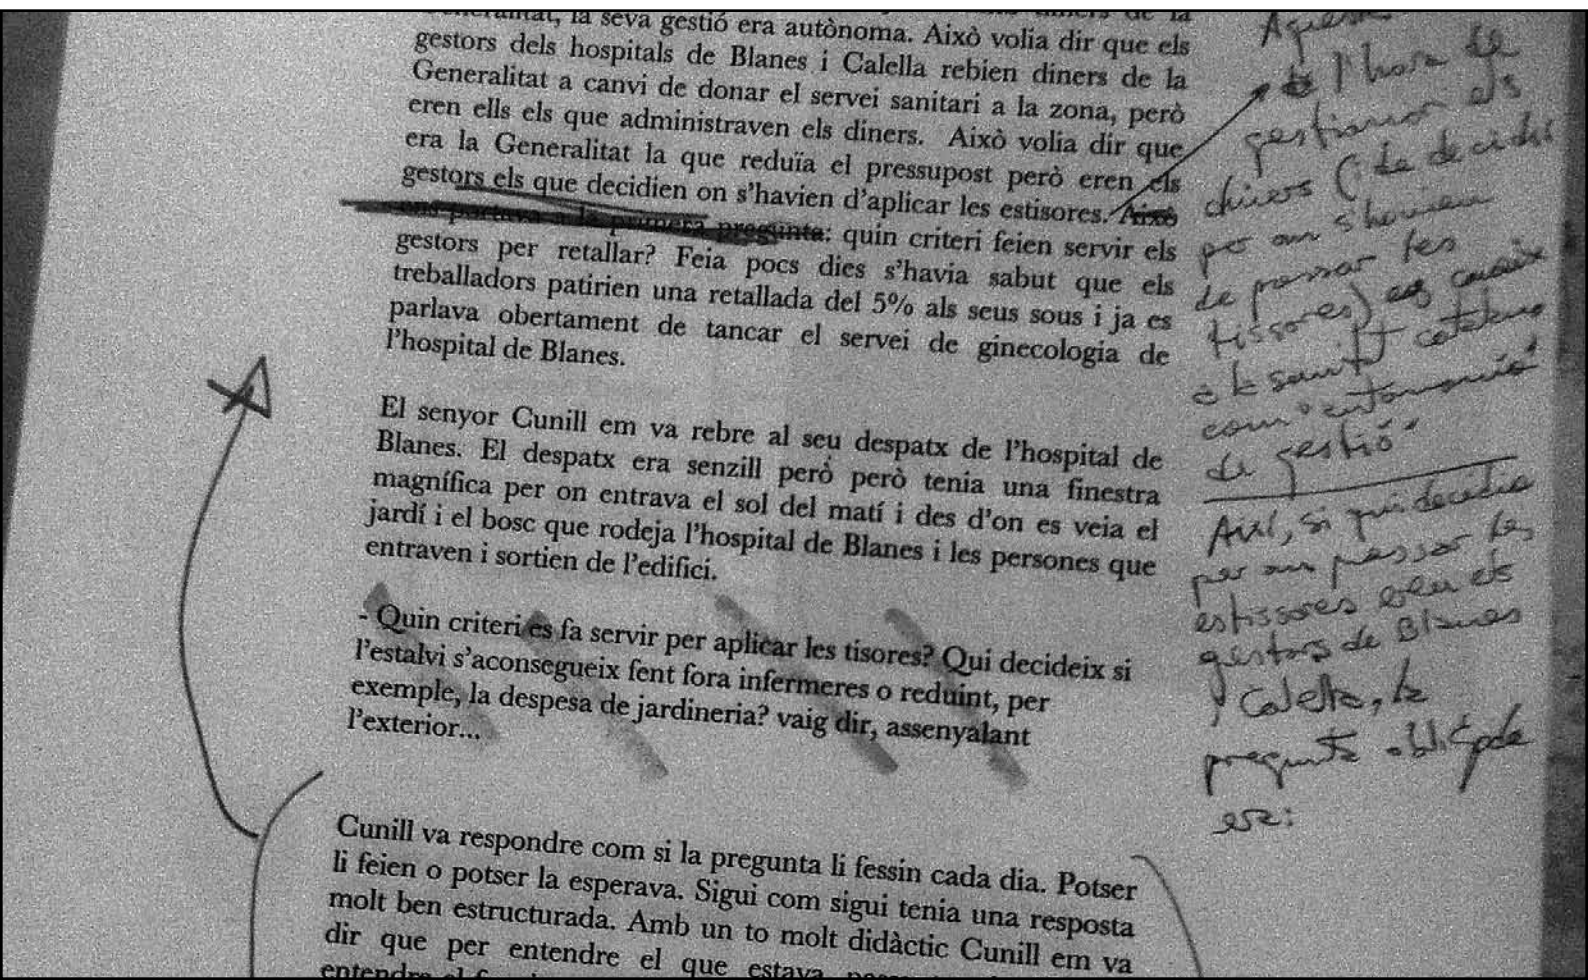 Generalitat, la seva gestió era autònoma. Això volia dir que els
gestors dels hospitals de Blanes i Calella rebien diners de la
Generalitat a canvi de donar el servei sanitari a la zona, però
eren ells els que administraven els diners. Això volia dir que
era la Generalitat la que reduïa el pressupost però eren els
gestors els que decidien on s'havien d'aplicar les estisores. Això
ens portava a la primera pregunta: quin criteri feien servir els
gestors per retallar? Feia pocs dies s'havia sabut que els
treballadors patirien una retallada del 5% als seus sous i ja es
parlava obertament de tancar el servei de ginecologia de
l'hospital de Blanes.
El senyor Cunill em va rebre al seu despatx de l'hospital de
Blanes. El despatx era senzill però però tenia una finestra
magnífica per on entrava el sol del matí i des d'on es veia el
jardí i el bosc que rodeja l'hospital de Blanes i les persones que
entraven i sortien de l'edifici.
- Quin criteri es fa servir per aplicar les tisores? Qui decideix si
l'estalvi s'aconsegueix fent fora infermeres o reduint, per
exemple, la despesa de jardineria? vaig dir, assenyalant
l'exterior...
Cunill va respondre com si la pregunta li fessin cada dia. Potser
li feien o potser la esperava. Sigui com sigui tenia una resposta
molt ben estructurada. Amb un to molt didàctic Cunill em va
dir que per entendre el que estava
entendre el
l'hora de
gestionar els
diners (i de decidir
per on s'havien
de passar les
tissores) es coneix
a la sanitat catalana
com "autonomia
de gestió"
Així, si qui decidia
per on passar les
estissores eren els
gestors de Blanes
y Calella, la
pregunta obligada
era: